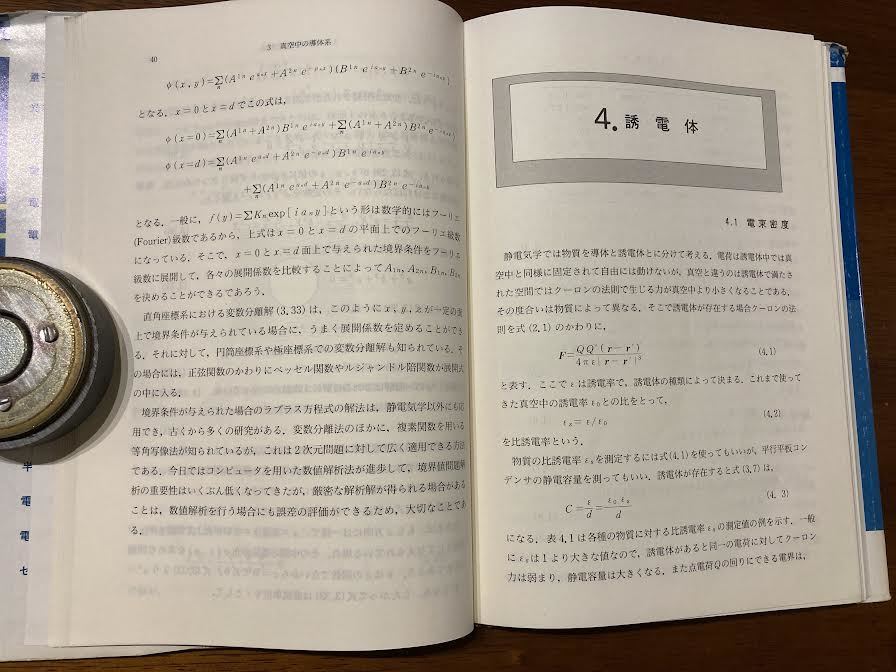 40
3 真空中の導体系
φ(x, y)=∑n(A1n e^{anx}+A2n e^{-anx})(B1n e^{iany}+B2n e^{-iany})
となる. x=0とx=dでこの式は,
φ(x=0)=∑n(A1n+A2n)B1n e^{iany}+∑n(A1n+A2n)B2n e^{-iany}
φ(x=d)=∑n(A1n e^{and}+A2n e^{-and})B1n e^{iany}
+∑n(A1n e^{and}+A2n e^{-and})B2n e^{-iany}
となる. 一般に, f(y)=∑Kn exp[i an y]という形は数学的にはフーリエ
(Fourier)級数であるから, 上式はx=0とx=dの平面上でのフーリエ級数
になっている. そこで, x=0とx=d面上で与えられた境界条件をフーリエ
級数に展開して, 各々の展開係数を比較することによってA1n, A2n, B1n, B2n
を決めることができるであろう.
直角座標系における変数分離解(3.33)は, このようにx, y, zが一定の面
上で境界条件が与えられている場合に, うまく展開係数を定めることができ
る. それに対して, 円筒座標系や極座標系での変数分離解も知られている. そ
の場合には, 正弦関数のかわりにベッセル関数やルジャンドル陪関数が展開式
の中に入る.
境界条件が与えられた場合のラプラス方程式の解法は, 静電気学以外にも応
用でき, 古くから多くの研究がある. 変数分離法のほかに, 複素関数を用いる
等角写像法が知られているが, これは2次元問題に対して広く適用できる方法
である. 今日ではコンピュータを用いた数値解析法が進歩して, 境界値問題解
析の重要性はいくぶん低くなってきたが, 厳密な解析解が得られる場合がある
ことは, 数値解析を行う場合にも誤差の評価ができるため, 大切なことであ
る.
4. 誘電体
4.1 電束密度
静電気学では物質を導体と誘電体とに分けて考える. 電荷は誘電体中では真
空中と同様に固定されて自由には動けないが, 真空と違うのは誘電体で満たさ
れた空間ではクーロンの法則で生じる力が真空中より小さくなることである.
その度合いは物質によって異なる. そこで誘電体が存在する場合クーロンの法
則を式(2.1)のかわりに,
F=QQ'(r-r')/4πε|r-r'|³ (4.1)
と表す. ここでεは誘電率で, 誘電体の種類によって決まる. これまで使って
きた真空中の誘電率ε0との比をとって,
εs=ε/ε0 (4.2)
を比誘電率という.
物質の比誘電率εsを測定するには式(4.1)を使ってもいいが, 平行平板コン
デンサの静電容量を測ってもいい. 誘電体が存在すると式(3.7)は,
C=ε/d=ε0 εs/d (4.3)
になる. 表4.1は各種の物質に対する比誘電率εsの測定値の例を示す. 一般
にεsは1より大きな値なので, 誘電体があると同一の電荷に対してクーロン
力は弱まり, 静電容量は大きくなる. また点電荷Qの回りにできる電界は,
電
電
セ